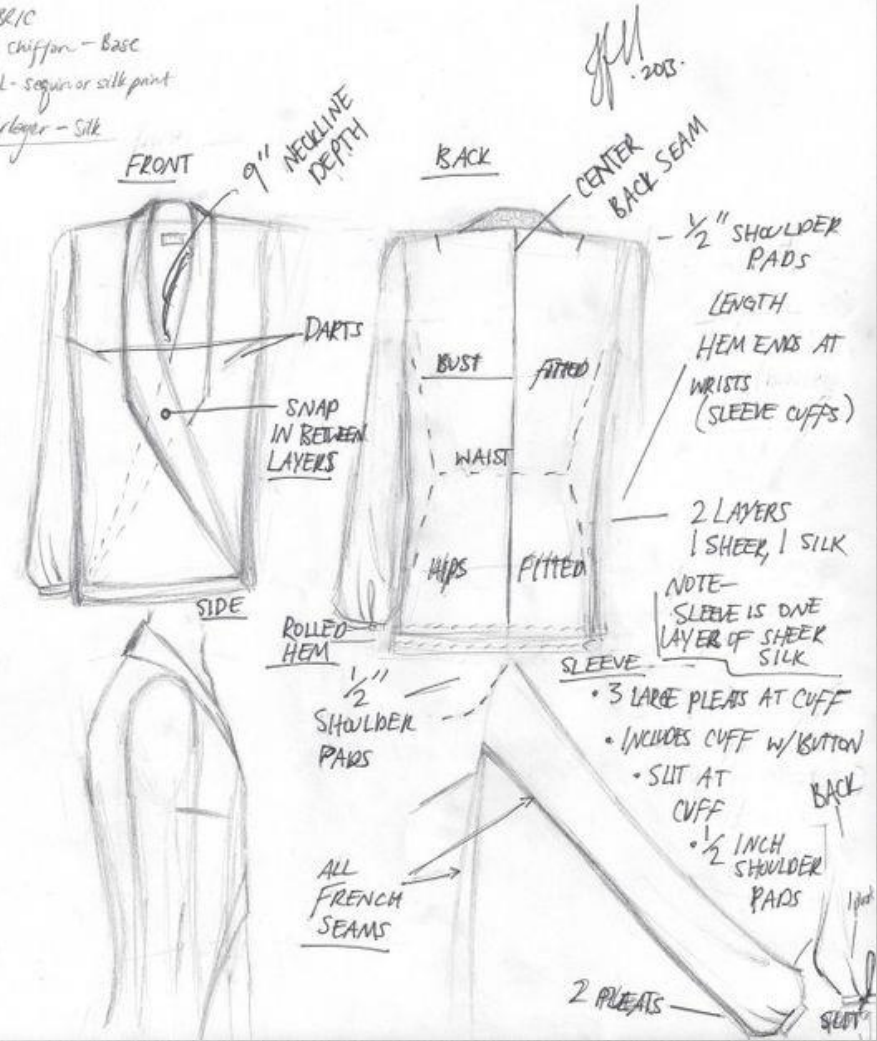 BRIC
chiffon - Base
L - sequin or silk print
rlayer - Silk
2013.
FRONT
9" NECKLINE
DEPTH
BACK
CENTER
BACK SEAM
- 1/2" SHOULDER
PADS
LENGTH
HEM ENDS AT
WRISTS
(SLEEVE CUFFS)
DARTS
SNAP
IN BETWEEN
LAYERS
BUST
FITTED
WAIST
HIPS
FITTED
2 LAYERS
1 SHEER, 1 SILK
NOTE-
SLEEVE IS ONE
LAYER OF SHEER
SILK
SIDE
ROLLED
HEM
1/2"
SHOULDER
PADS
SLEEVE
• 3 LARGE PLEATS AT CUFF
• INCLUDES CUFF W/BUTTON
• SLIT AT
CUFF
• 1/2 INCH
SHOULDER
PADS
BACK
ALL
FRENCH
SEAMS
2 PLEATS
SLIT